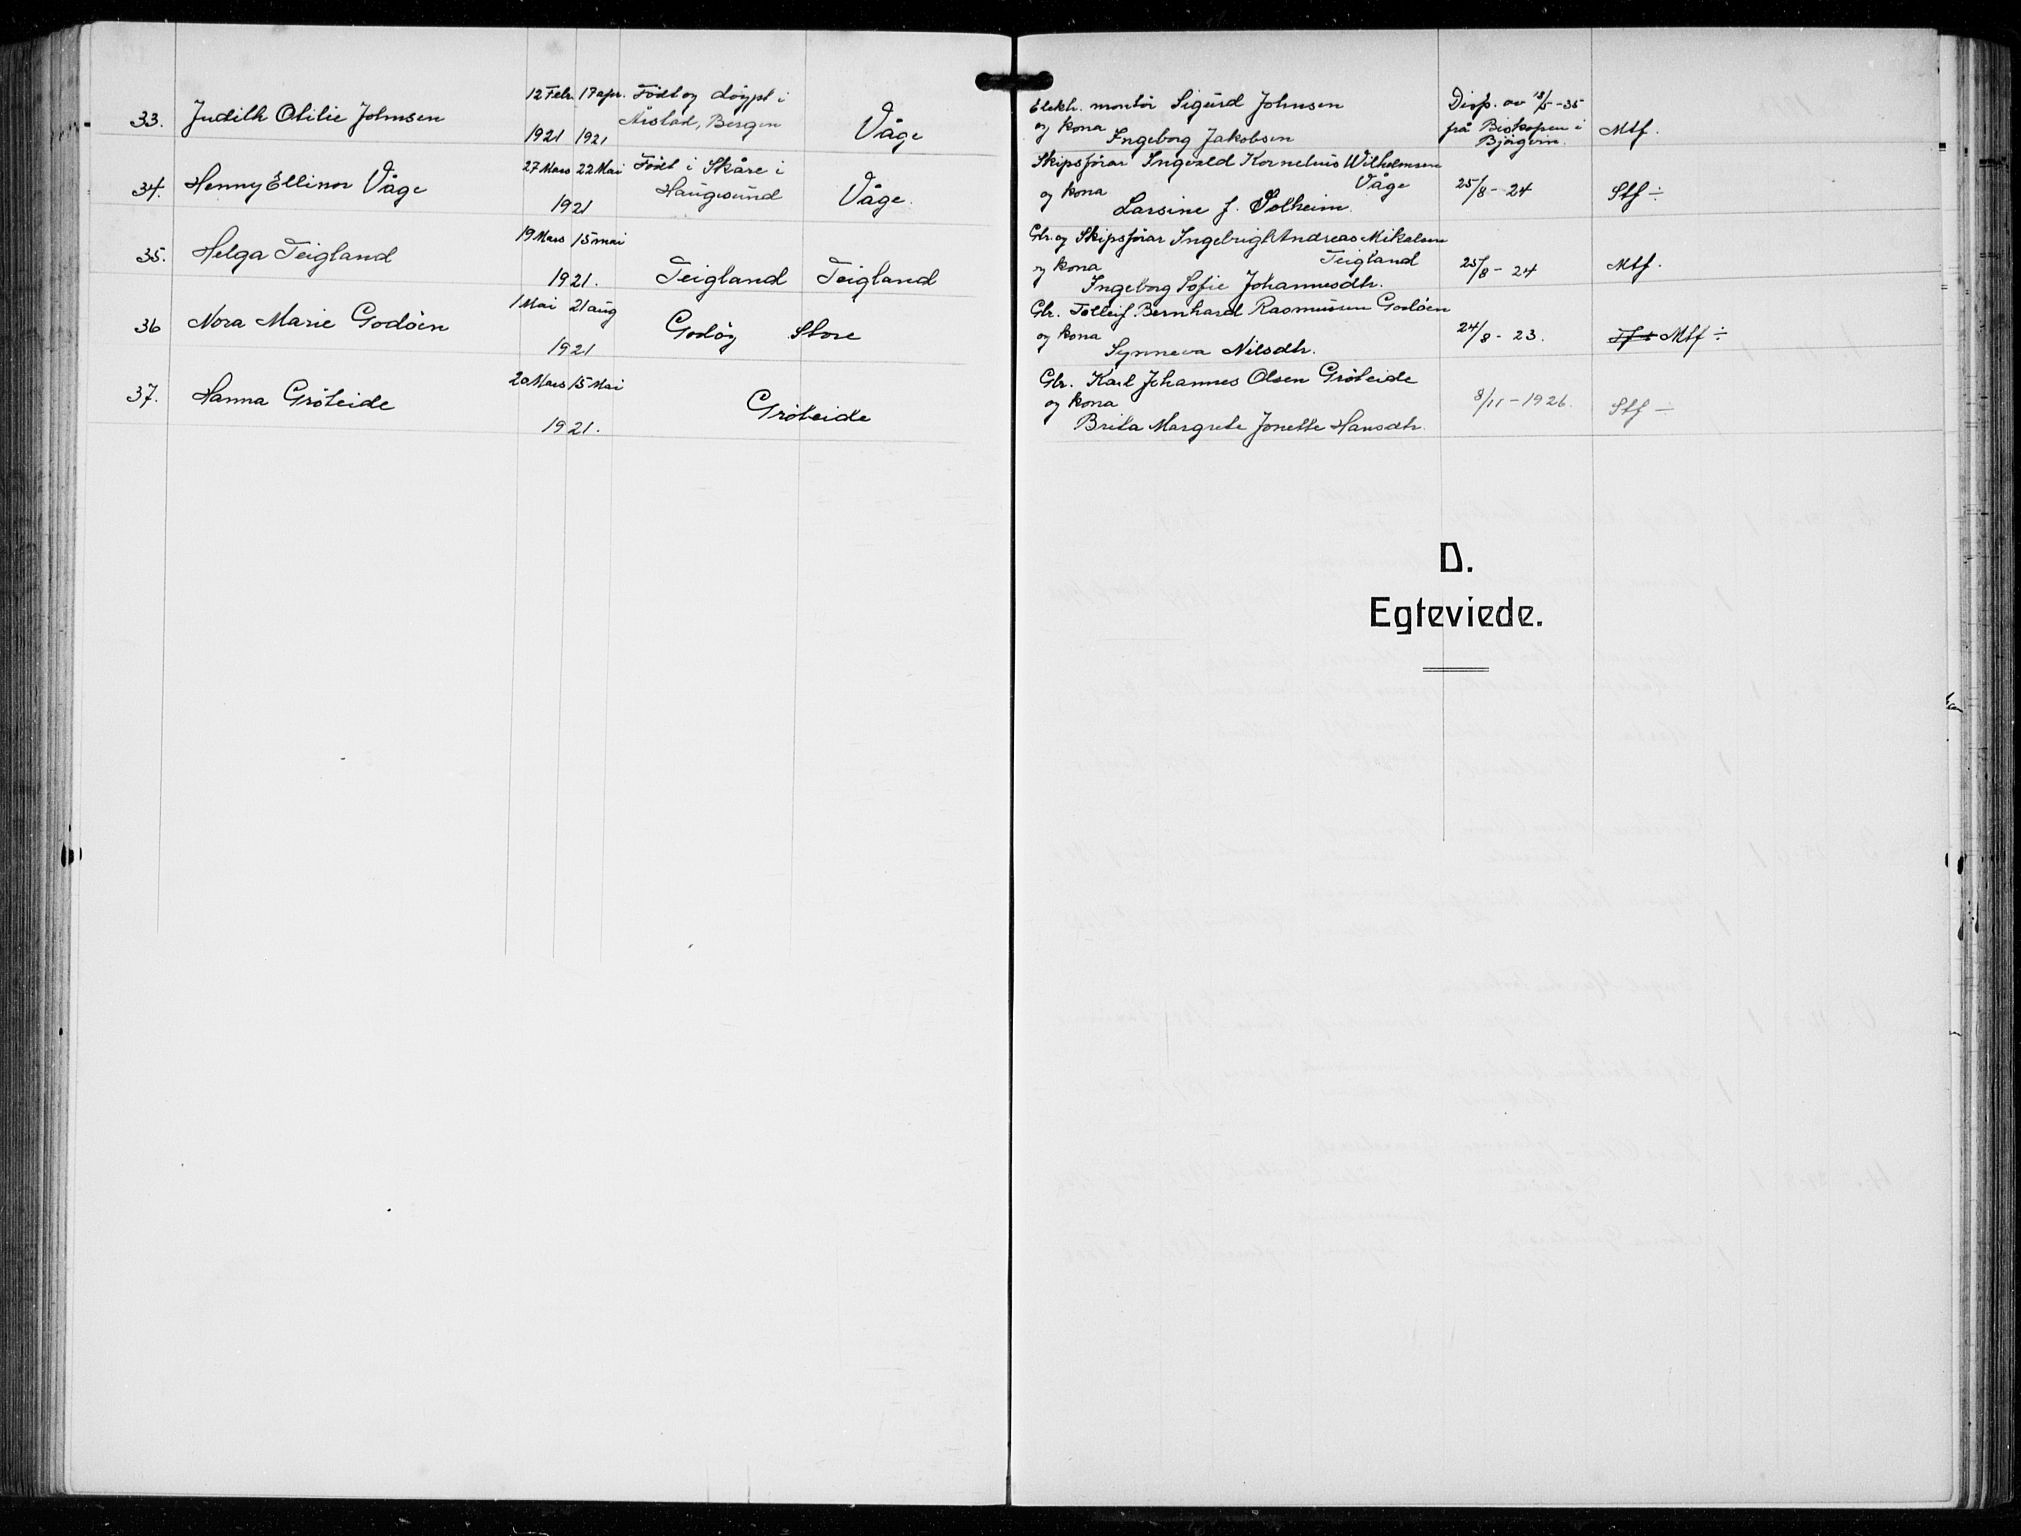 33. Judith Otilie Johnsen 12 Febr. 17 apr. Født og døypt i
1921 1921 Årstad, Bergen Våge
Elektr. montør Sigurd Johnsen Disp. av 13/5-35
og kona Ingeborg Jakobsen frå Biskopen i Bjørgvin. Mtf.
34. Henny Ellinor Våge 27 Mars 22 Mai Født i Skåre i
1921 Haugesund Våge.
Skipsførar Ingvald Kornelius Wilhelmsen
Våge 25/8-24 Stf ÷
og kona Larsine J. Solheim.
35. Helga Teigland 19 Mars 15 mai
1921. Teigland Teigland
Gbr. og Skipsførar Ingebrigt Andreas Mikalsen
Teigland 25/8-24 Mtf.
og kona Ingeborg Sofie Johannesdtr.
36 Nora Marie Godøen 1 Mai 21 aug
1921 Godøy Store
Gbr. Tolleif Bernhard Rasmussen Godøen
og kona Synneva Nilsdtr. 24/8-23. Mtf ÷
37. Hanna Grøteide 20 Mars 15 Mai
1921. Grøteide
Gbr. Karl Johannes Olsen Grøteide
og kona 8/11-1926. Stf ÷
Brita Margrete Jonette Hansdtr.
D.
Egteviede.